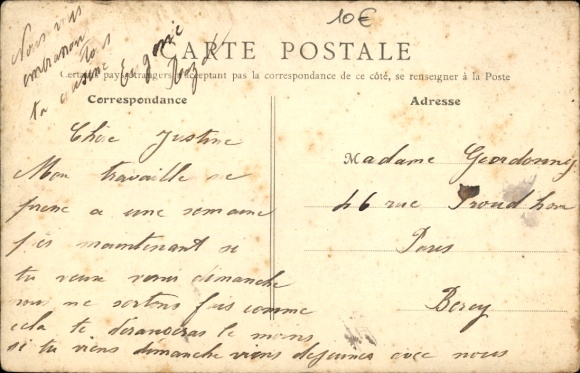 10€
CARTE POSTALE
Certains pays étrangers n'acceptant pas la correspondance de ce côté, se renseigner à la Poste
Nous vous
embrasson tous
ta cousine Eugenie
Correspondance
Chère Justine
Mon travaille se
a une semaine
maintenant si
tu veux venir dimanche
nous ne sortons pas comme
cela te dérangeras le moins
si tu viens dimanche viens dejeuner avec nous
Adresse
Madame
46 rue Proudhon
Paris
Bercy